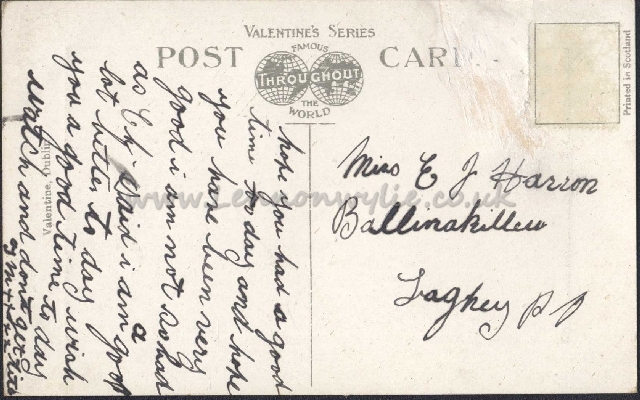 VALENTINE'S SERIES
POST CARD
FAMOUS
THROUGHOUT
THE
WORLD
Printed in Scotland
Valentine, Dublin
www.lennonwylie.co.uk
hope you had a good
time to day and hope
you have been very
good i am not so bad
as E said i am a
lot better to day
you a good time to day
watch and dont get
Miss E J Harron
Ballinakillew
Laghey P O